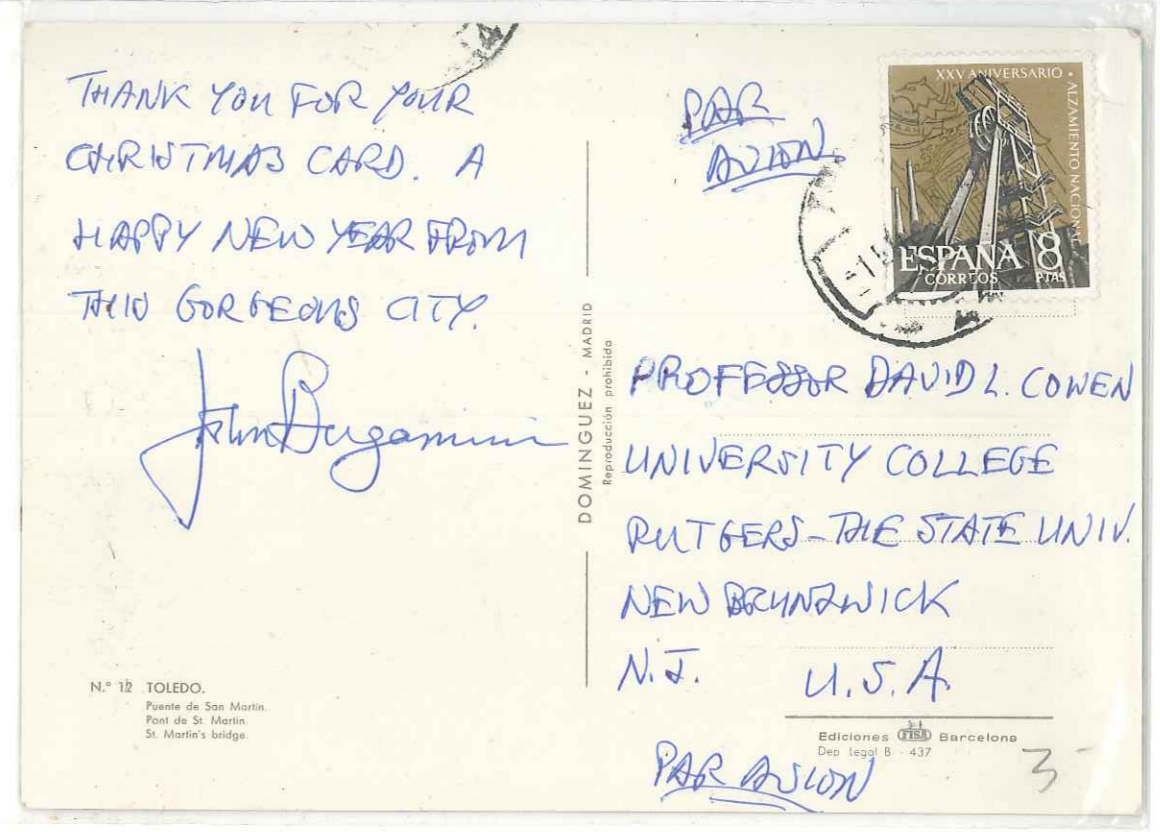 THANK YOU FOR YOUR
CHRISTMAS CARD. A
HAPPY NEW YEAR FROM
THIS GORGEOUS CITY.
John Bergamini
N.° 12 TOLEDO.
Puente de San Martín.
Pont de St. Martin.
St. Martin's bridge.
DOMINGUEZ - MADRID
Reproducción prohibida
PAR
AVION
XXV ANIVERSARIO • ALZAMIENTO NACIONAL
ESPAÑA 8
CORREOS PTAS
PROFESSOR DAVID L. COWEN
UNIVERSITY COLLEGE
RUTGERS-THE STATE UNIV.
NEW BRUNSWICK
N.J. U.S.A.
Ediciones FISA Barcelona
Dep Legal B - 437
PAR AVION
3-